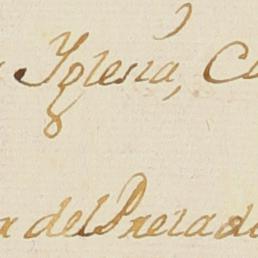 Yglesia, C
del Prelad